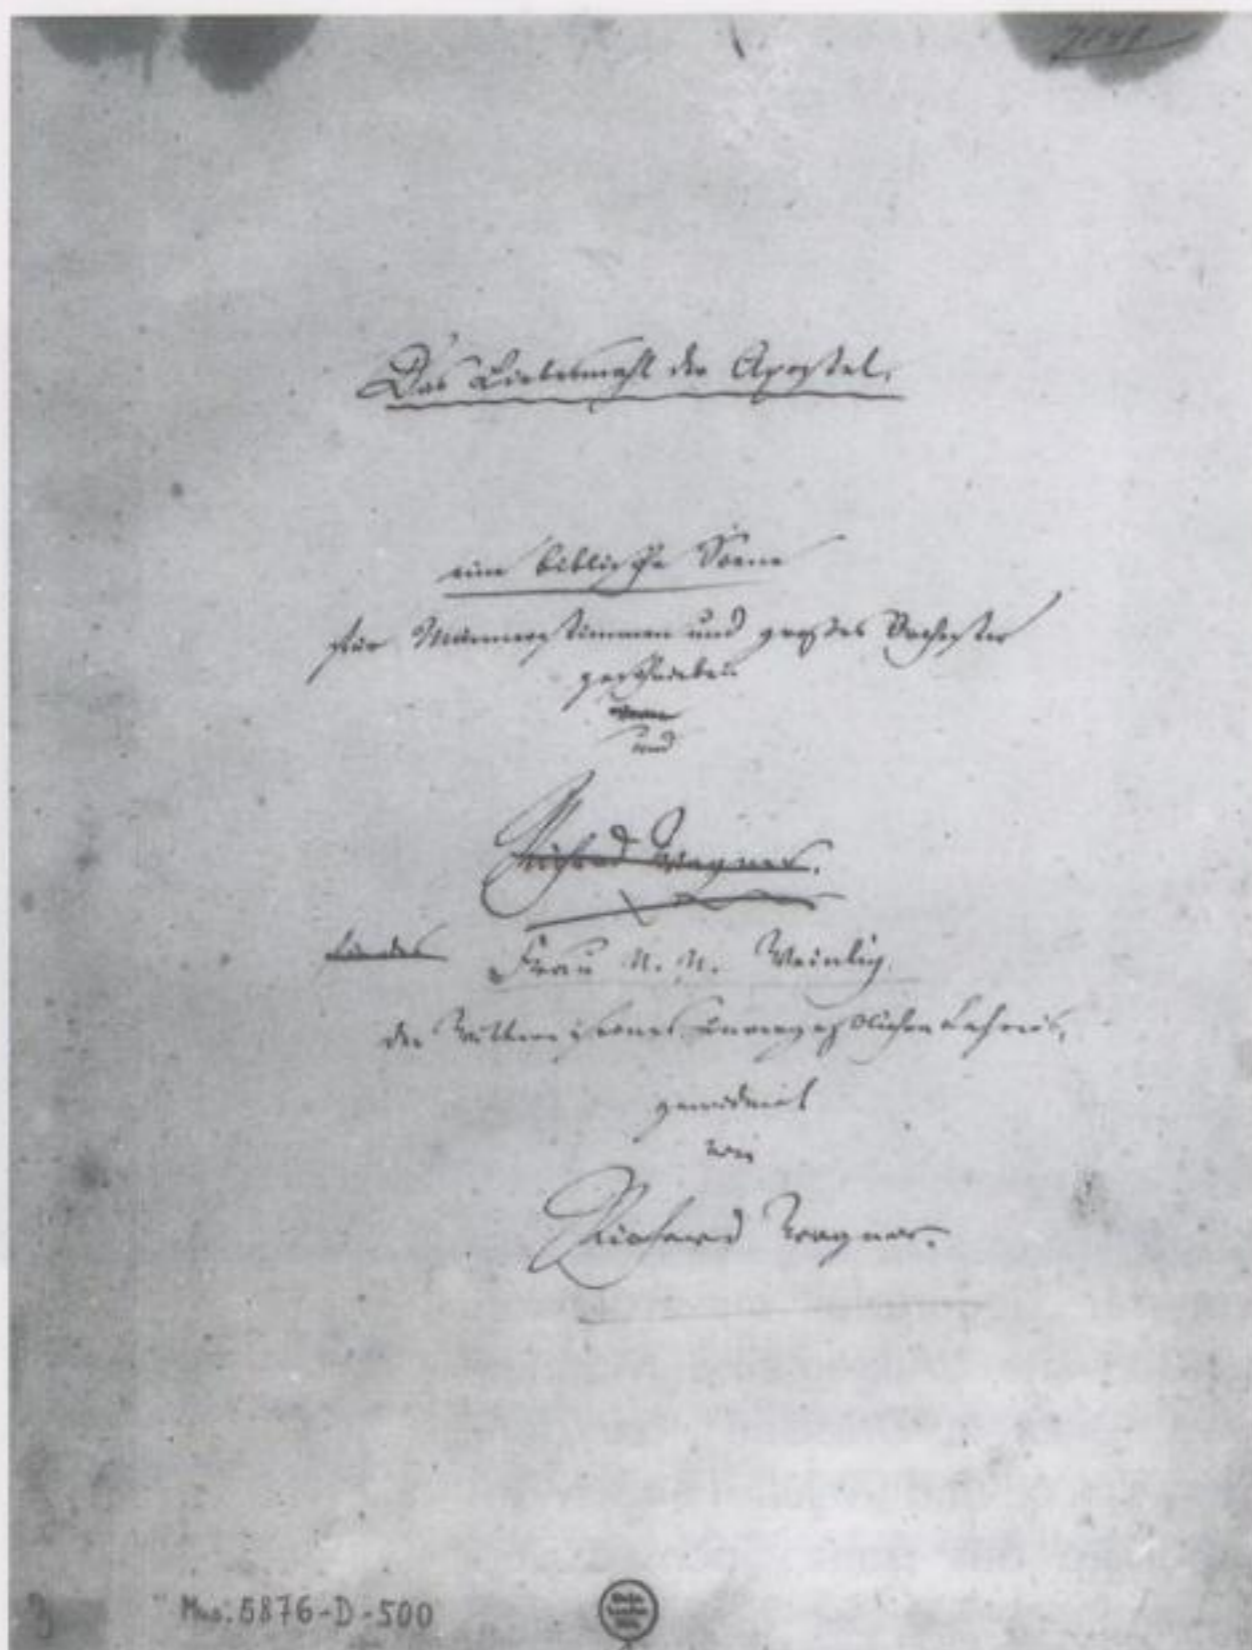 Das Liebesmahl der Apostel.
eine biblische Scene
für Männerstimmen und großes Orchester
geschrieben
und
Richard Wagner.
Frau N. N. Weinlig,
der Wittwe seines unvergeßlichen Lehrers,
gewidmet
von
Richard Wagner.
Mus. 5876-D-500